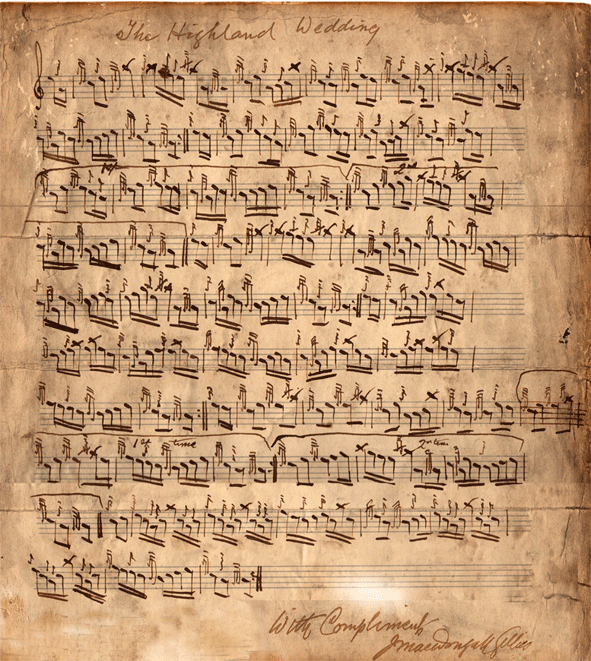 The Highland Wedding
1st
2nd
1st time
2nd time
With Compliments
J Macdougall Gillies